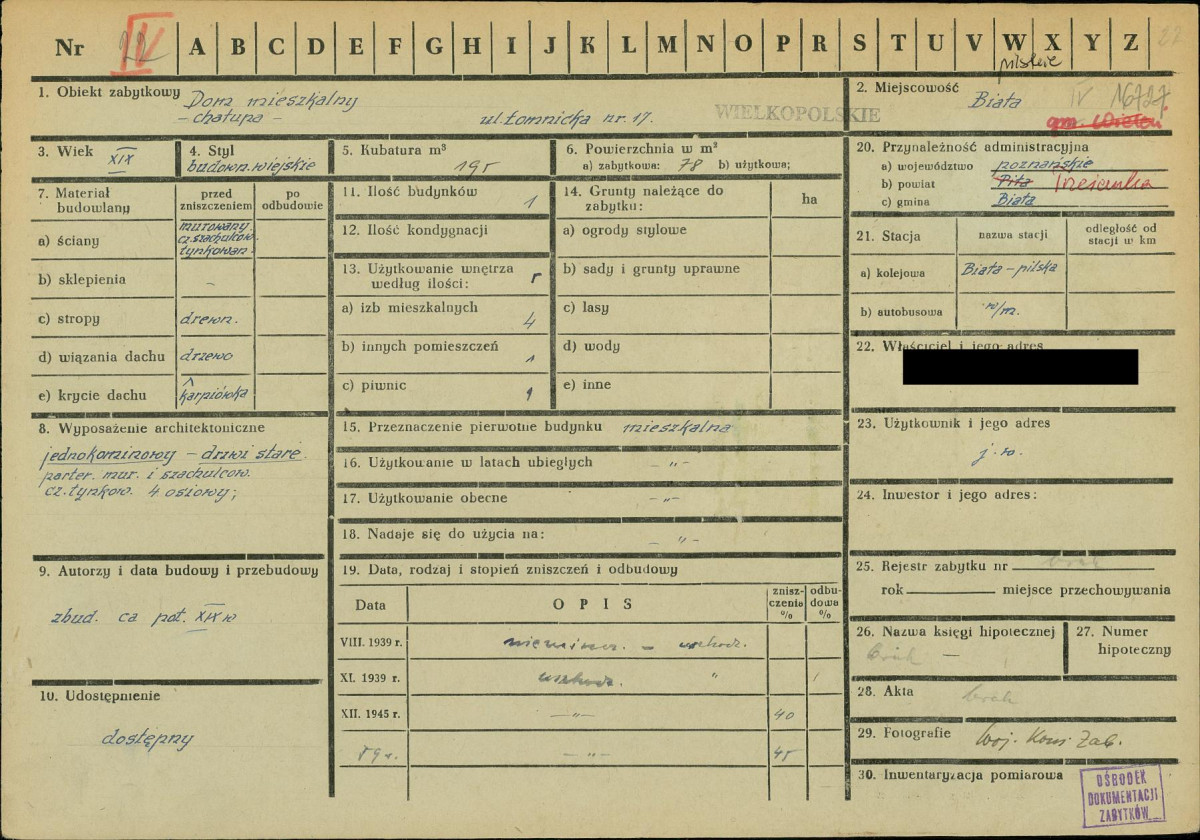 Nr IV 22 A B C D E F G H I J K L M N O P R S T U V W X Y Z 22
1. Obiekt zabytkowy Dom mieszkalny
- chałupa - ul. Łomnicka nr. 17.
WIELKOPOLSKIE
2. Miejscowość Biała
pilskie
IV 16727
gm. Wieleń
3. Wiek XIX
4. Styl
budown. wiejskie
5. Kubatura m³
195
6. Powierzchnia w m²
a) zabytkowa: 78 b) użytkowa;
7. Materiał budowlany
przed zniszczeniem
po odbudowie
a) ściany murowany
cz. szachulcow.
tynkowan.
b) sklepienia -
c) stropy drewn.
d) wiązania dachu drzewo
e) krycie dachu karpiówka
8. Wyposażenie architektoniczne
jednokominowy - drzwi stare.
parter. mur. i szachulcow.
cz. tynkow. 4 osiowy;
9. Autorzy i data budowy i przebudowy
zbud. ca poł. XIX w
10. Udostępnienie
dostępny
11. Ilość budynków 1
12. Ilość kondygnacji
13. Użytkowanie wnętrza
według ilości:
a) izb mieszkalnych 4
b) innych pomieszczeń 1
c) piwnic 1
14. Grunty należące do
zabytku:
ha
a) ogrody stylowe
b) sady i grunty uprawne
c) lasy
d) wody
e) inne
15. Przeznaczenie pierwotne budynku mieszkalna
16. Użytkowanie w latach ubiegłych - „ -
17. Użytkowanie obecne - „ -
18. Nadaje się do użycia na: - „ -
19. Data, rodzaj i stopień zniszczeń i odbudowy
Data
OPIS
znisz-
czenia
%
odbu-
dowa
%
VIII. 1939 r. - uszkodz.
XI. 1939 r. uszkodz. "
XII. 1945 r. - „ - 40
59 r. - „ - 45
20. Przynależność administracyjna
a) województwo poznańskie
b) powiat Piła Trzcianka
c) gmina Biała
21. Stacja
nazwa stacji
odległość od
stacji w km
a) kolejowa Biała - pilska
b) autobusowa w/m.
22. Właściciel i jego adres
23. Użytkownik i jego adres
j. w.
24. Inwestor i jego adres:
25. Rejestr zabytku nr brak
rok miejsce przechowywania
26. Nazwa księgi hipotecznej
brak -
27. Numer
hipoteczny
28. Akta brak
29. Fotografie Woj. Kons. Zab.
30. Inwentaryzacja pomiarowa
OŚRODEK
DOKUMENTACJI
ZABYTKÓW